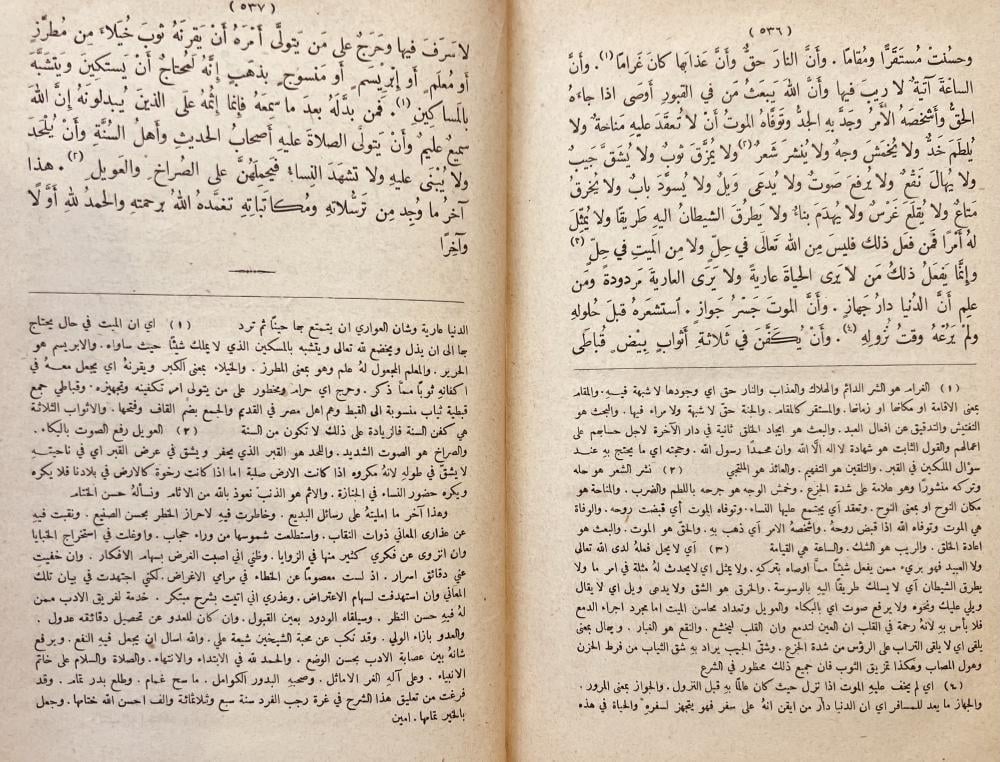 ( ٥٣٦ )
وحسُنتْ مُستَقَرًّا ومُقامًا . وأَنَّ النارَ حقٌّ وأَنَّ عذابَها كانَ غَرامًا (١) . وأَنَّ
الساعَةَ آتيةٌ لا رِيبَ فيها وأَنَّ اللهَ يبعَثُ مَن في القبورِ أوصى اذا جاءَهُ
الحقُّ وأَشخصهُ الأَمرُ وجَدَّ بهِ الجدُّ وتوفَّاهُ الموتُ أَنْ لا تُعقَدَ عليهِ مَناحةٌ ولا
يُلطَم خَدٌّ ولا يُخْمَشَ وجهٌ ولا يُنشر شَعرٌ (٢) ولا يُمزَّق ثوبٌ ولا يُشقَّ جَيبٌ
ولا يُهالَ نَقْعٌ ولا يُرفعَ صَوتٌ ولا يُدعَى وَيلٌ ولا يُسوَّدَ بابٌ ولا يُخرَقُ
متاعٌ ولا يُقلَعَ غَرْسٌ ولا يُهدَمَ بناءٌ ولا يَطرقَ الشيطانُ اليهِ طَريقًا ولا يُمتثِلَ
لهُ أَمْرًا فَمن فعَل ذلك فليسَ مِن الله تعالى في حِلٍّ ولا مِن الميتِ في حِلٍّ (٣)
وإِنَّما يَفعَلُ ذلكَ مَن لا يرى الحياةَ عاريةً ولا يَرى العاريةَ مَردودةً ومَن
علِم أَنَّ الدُّنيا دارُ جَهازٍ . وأَنَّ الموتَ جَسْرُ جَوازٍ . استشعرَهُ قَبلَ حُلولهِ
ولَمْ يَرُعْهُ وقتَ نُزولِهِ (٤) . وأَنْ يُكفَّنَ في ثلاثةِ أَثوابٍ بِيْضٍ قُباطَى
(١) الغرام هو الشر الدائم والهلاك والعذاب والنار حق اي وجودها لا شبهة فيه . والمقام
بمعنى الاقامة او مكانها او زمانها . والمستقر كالمقام . والجنة حقّ لا شبهة ولا مراء فيها . والبحث هو
التفتيش والتدقيق عن افعال العبد . والبعث هو ايجاد الخلق ثانية في دار الآخرة لاجل حسابهم على
اعمالهم والقول الثابت هو شهادة لا اله الَّا الله وان محمدًا رسول الله . وحجته اي ما يحتج به عند
سؤال الملكين في القبر . والتلقين هو التفهيم . والعائذ هو الملتجي (٢) نشر الشعر هو حله
وتركه منشورًا وهو علامة على شدة الجزع . وخمش الوجه هو جرحه باللطم والضرب . والمناحة هو
مكان النوح او بمعنى النوح . وتعقد اي يجتمع عليها النساء . وتوفاه الموت أي قبضت روحه . والوفاة
هي الموت وتوفاه الله اذا قبض روحهُ . واشخصهُ الامر أي ذهب به . والحق هو الموت . والبعث هو
اعادة الخلق . والريب هو الشك . والساعة هي القيامة (٣) أي لا يحل فعلهُ لدى الله تعالى
ولا العبيد فهو بريء . ممن يفعل شيئًا ممَّا اوصاه بتركهِ . ولا يمثل اي لا يحدث لهُ مثلة في امر ما ولا
يطرق الشيطان أي لا يسلك طريقًا اليهِ بالوسوسة . والخرق هو الشق ولا يدعى ويل اي لا يقال
ويلي عليك ونحوه ولا يرفع صوت اي بالبكاء والعويل وتعداد محاسن الميت اما مجرد اجراء الدمع
فلا بأس بهِ لانهُ رحمة في القلب ان العين لتدمع وان القلب ليخشع . والنقع هو الغبار . ويهال بمعنى
يلقى اي لا يلقى التراب على الرؤس من شدة الجزع . وشق الجيب يراد به شق الثياب من فرط الحزن
وهول المصاب وهكذا تمزيق الثوب فان جميع ذلك محظور في الشرع
(٤) اي لم يخف عليه الموت اذا نزل حيث كان عالمًا بهِ قبل النزول . والجواز بمعنى المرور .
والجهاز ما يعد للمسافر اي ان الدنيا دار من ايقن انهُ على سفر فهو يتجهز لسفرهِ والحياة في هذه
( ٥٣٧ )
لا سَرَفَ فيها وحَرَجٌ على مَن يَتولَّى أَمْرَهُ أَنْ يَقرنَهُ ثوبَ خُيلاءَ مِن مطرَّزٍ
أَو مُعلَمٍ . أَو إِبرِيسمٍ أَو مَنسوجٍ بذهَبٍ إِنَّهُ لَمحتاجٌ أَنْ يَستكينَ ويَتشبَّهَ
بالمَساكينِ (١) . فَمن بدَّلَهُ بعد ما سمِعَهُ فإنما إِثْمُهُ عَلَى الذينَ يُبدلونَهُ إِنَّ اللهَ
سميعٌ عليمٌ وأَنْ يَتولى الصلاةَ عليهِ أصحابُ الحديثِ وأَهلُ السُّنَّةِ وأَنْ يُلْحَدَ
ولا يُبْنَى عليهِ ولا تشهدَ النِّساءُ فيَحمِلَهُنَّ على الصُراخِ والعَويلِ (٢) . هذا
آخرُ ما وُجد مِن ترَسُّلاتهِ ومُكاتباتِهِ تغمدهُ اللهُ برحمتِهِ والحمدُ للهِ أوَّلًا
وآخِرًا
الدنيا عارية وشان العواري ان يتمتع بها حينًا ثم ترد (١) اي ان الميت في حال يحتاج
بها الى ان يذل ويخضع لله تعالى ويتشبه بالمسكين الذي لا يملك شيئًا حيث ساواه . والابريسم هو
الحرير . والمعلم المجعول لهُ علم وهو بمعنى المطرز . والخيلاء بمعنى الكبر ويقرنهُ اي يجعل معهُ في
اكفانهِ ثوبًا ممَّا ذكر . وحرج اي حرام ومحظور على من يتولى امر تكفينه وتجهيزه . وقباطي جمع
قبطية ثياب منسوبة الى القبط وهم اهل مصر في القديم والجمع بضم القاف وفتحها . والاثواب الثلاثة
هي كفن السنة فالزيادة على ذلك لا تكون من السنة (٢) العويل رفع الصوت بالبكاء .
والصراخ هو الصوت الشديد . واللحد هو القبر الذي يحفر ويشق في عرض القبر اي في ناحيتهِ
لا يشق في طولهِ لانهُ مكروه اذا كانت الارض صلبة اما اذا كانت رخوة كالارض في بلادنا فلا يكره
ويكره حضور النساء في الجنازة . والاثم هو الذنب نعوذ بالله من الآثام ونسألهُ حسن الختام
وهذا آخر ما امليتهُ على رسائل البديع . وخاطرت فيهِ لاحراز الخطر بحسن الصنيع . ونقبت فيهِ
عن عذارى المعاني ذوات النقاب . واستطلعت شموسها من وراء حجاب . واوغلت في استخراج الخبايا
وان انزوى عن فكري كثير منها في الزوايا . وظني اني اصبت الغرض بسهام الافكار . وان خفيت
عني دقائق اسرار . اذ لست معصومًا عن الخطاء في مرامي الاغراض . لكني اجتهدت في بيان تلك
المعاني وان استهدفت لسهام الاعتراض . وعذري اني اتيت بشرح مبتكر . خدمة لفريق الادب ممن
لهُ فيهِ حسن النظر . وسيلقاه الودود بعين القبول . وان كان للعدو عن تحصيل دقائقه عدول .
والعدو بازاء الولي . وقد نكب عن محبة الشيخين شيعة علي . والله اسال ان يجعل فيهِ النفع . ويرفع
شانهُ بين عصابة الادب بحسن الوضع . والحمد لله في الابتداء والانتهاء . والصلاة والسلام على خاتم
الانبياء . وعلى آله الغر الاماثل . وصحبهِ البدور الكوامل . ما سح غمام . وطلع بدر تمام . وقد
فرغت من تعليق هذا الشرح في غرة رجب الفرد سنة سبع وثلاثمائة والف احسن الله ختامها . وجعل
بالخير تمامها . امين